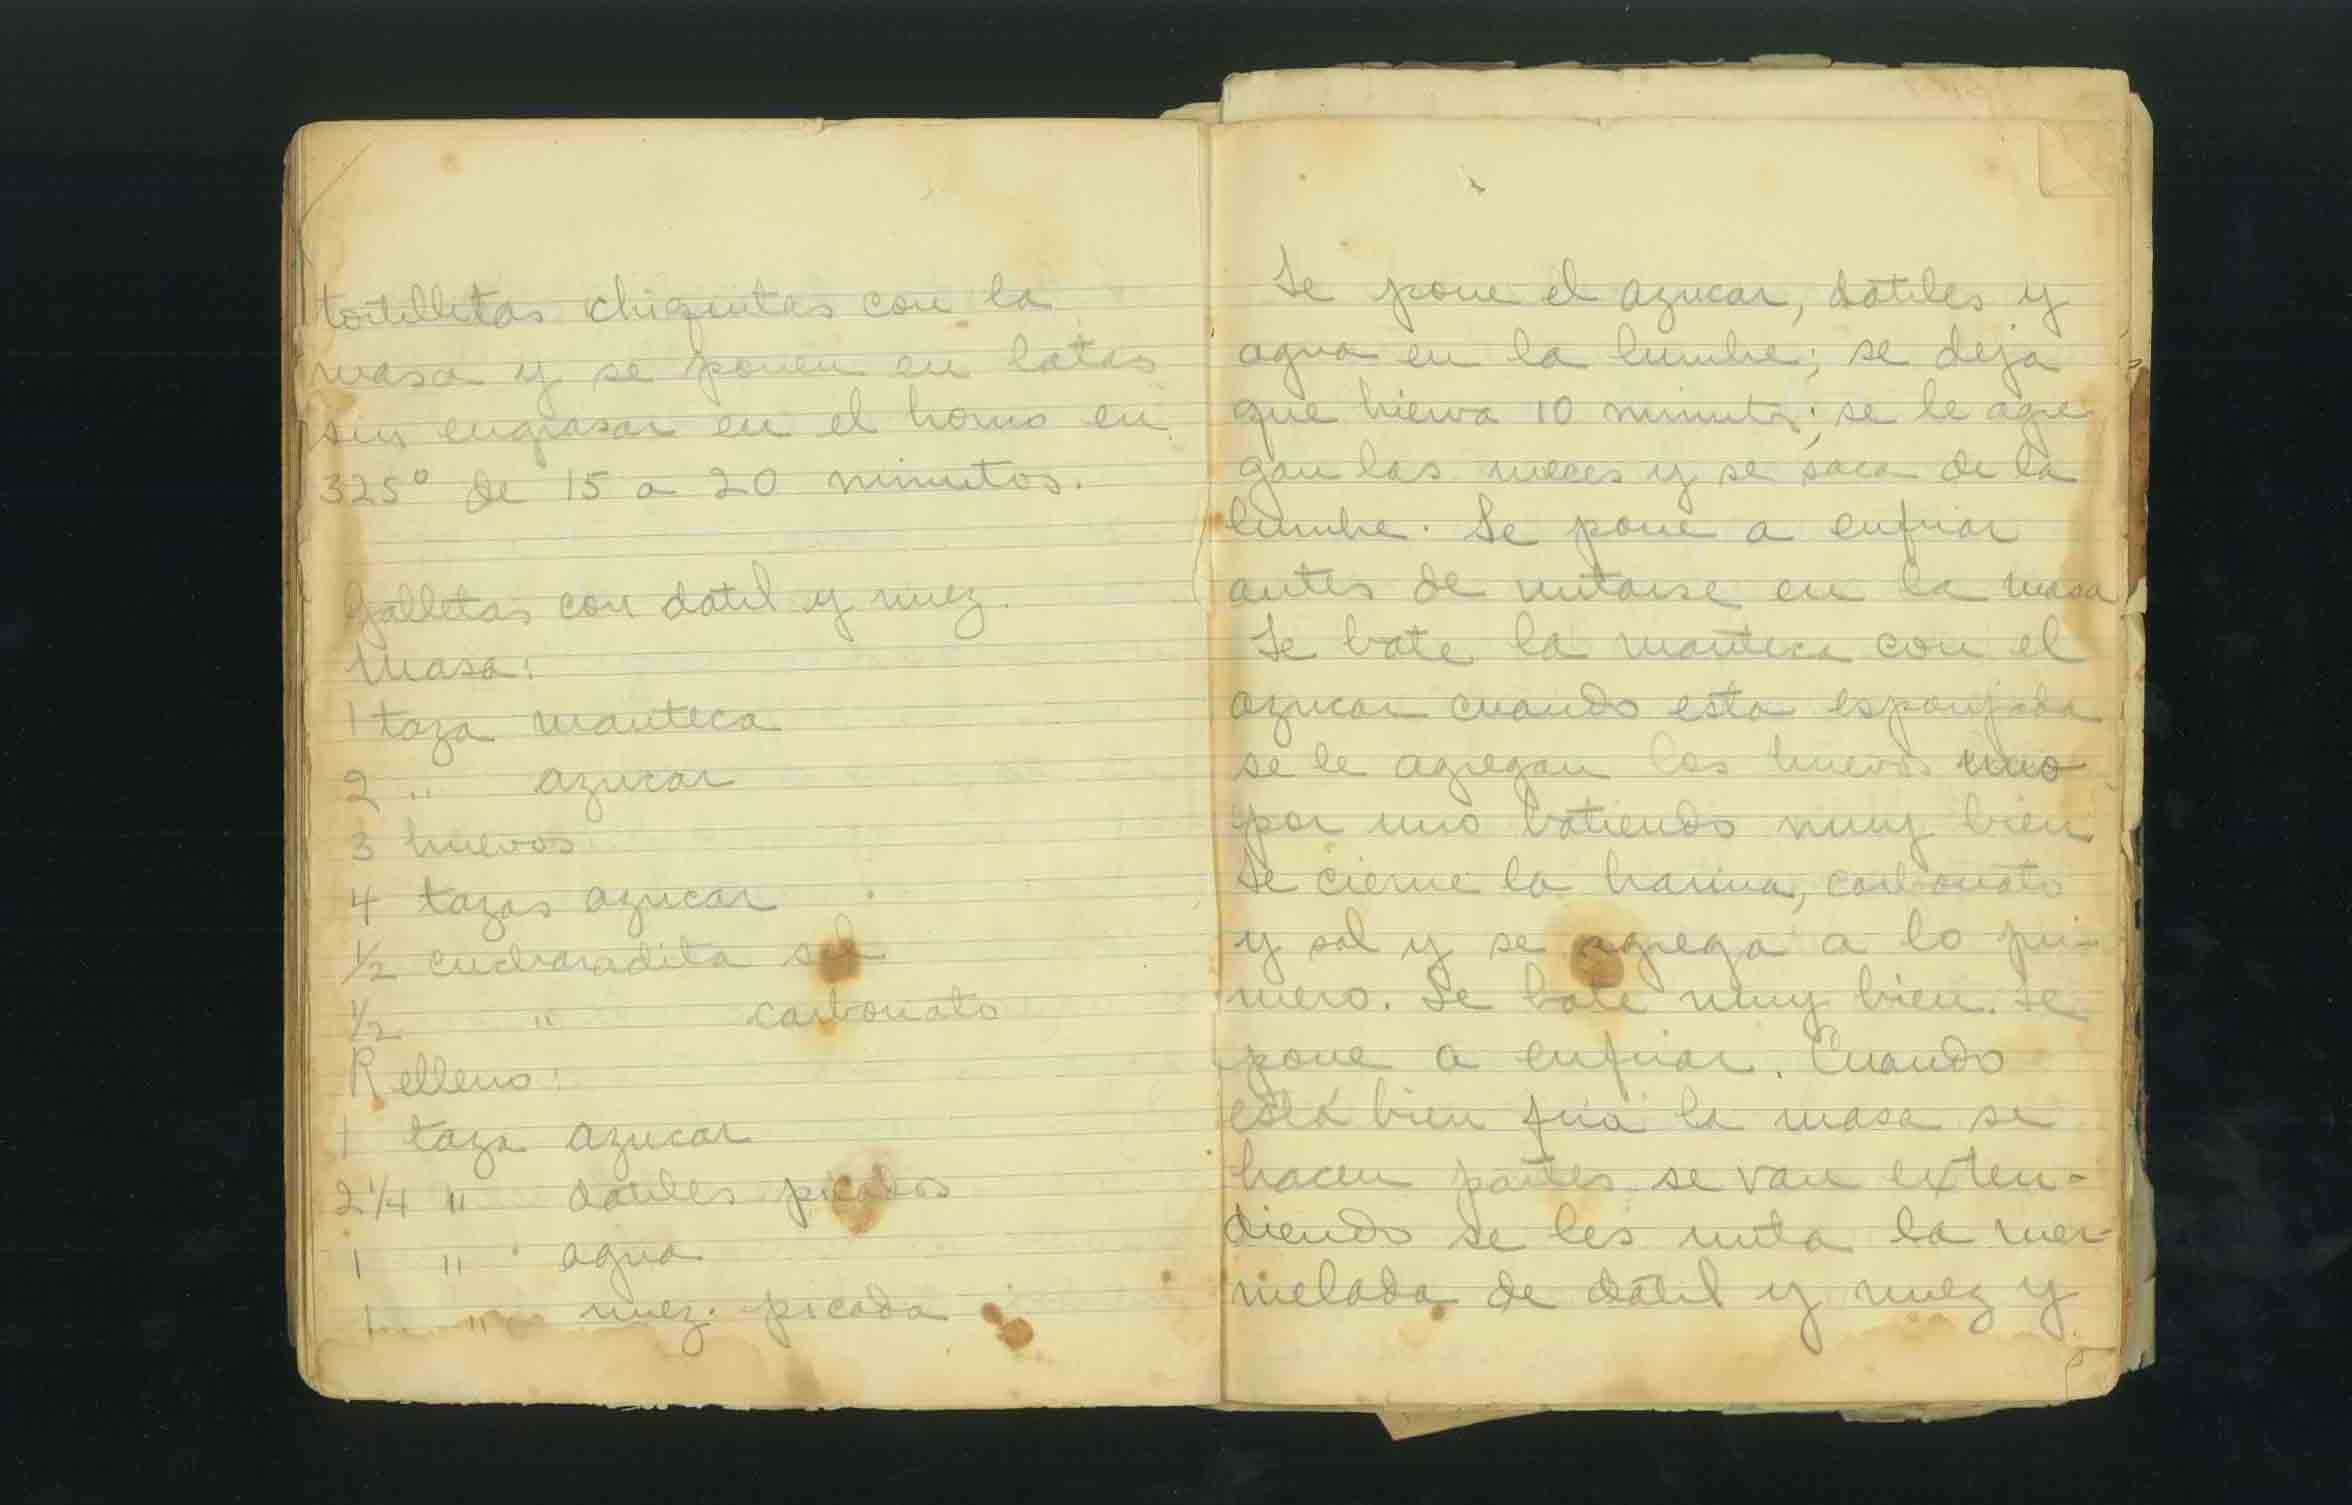 tortillitas chiquitas con la
masa y se ponen en latas
sin engrasar en el horno en
325° de 15 a 20 minutos.
Galletas con datil y nuez.
Masa:
1 taza manteca
2 " azucar
3 huevos
4 tazas azucar
1/2 cucharadita sal
1/2 " carbonato
Relleno:
1 taza azucar
2 1/4 " datiles picados
1 " agua
1 " nuez picada
Se pone el azucar, datiles y
agua en la lumbre; se deja
que hierva 10 minutos; se le agre
gan las nueces y se saca de la
lumbre. Se pone a enfriar
antes de untarse en la masa
Se bate la manteca con el
azucar cuando esta esponjada
se le agregan los huevos uno
por uno batiendo muy bien
Se cierne la harina, carbonato
y sal y se agrega a lo pri-
mero. Se bate muy bien. Se
pone a enfriar. Cuando
está bien fria la masa se
hacen partes se van exten-
diendo se les unta la mer-
melada de dátil y nuez y